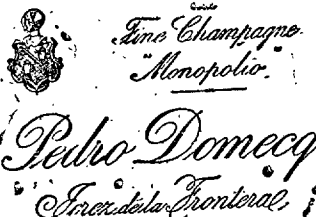 Fine Champagne.
"Monopolio".
Pedro Domecq
Jerez de la Frontera